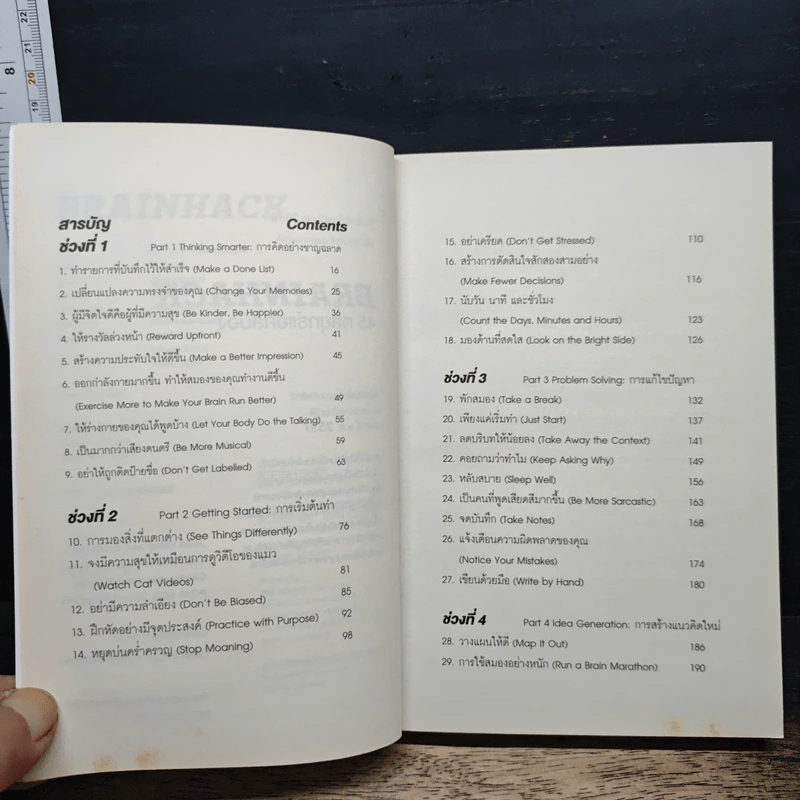 22
21
8
20
19
BRAINHACK
สารบัญ Contents
ช่วงที่ 1 Part 1 Thinking Smarter: การคิดอย่างชาญฉลาด
1. ทำรายการที่บันทึกไว้ให้สำเร็จ (Make a Done List) 16
2. เปลี่ยนแปลงความทรงจำของคุณ (Change Your Memories) 25
3. ผู้มีจิตใจดีคือผู้ที่มีความสุข (Be Kinder, Be Happier) 36
4. ให้รางวัลล่วงหน้า (Reward Upfront) 41
5. สร้างความประทับใจให้ดีขึ้น (Make a Better Impression) 45
6. ออกกำลังกายมากขึ้น ทำให้สมองของคุณทำงานดีขึ้น
(Exercise More to Make Your Brain Run Better) 49
7. ให้ร่างกายของคุณได้พูดบ้าง (Let Your Body Do the Talking) 55
8. เป็นมากกว่าเสียงดนตรี (Be More Musical) 59
9. อย่าให้ถูกติดป้ายชื่อ (Don't Get Labelled) 63
ช่วงที่ 2 Part 2 Getting Started: การเริ่มต้นทำ
10. การมองสิ่งที่แตกต่าง (See Things Differently) 76
11. จงมีความสุขให้เหมือนการดูวิดีโอของแมว
(Watch Cat Videos) 81
12. อย่ามีความลำเอียง (Don't Be Biased) 85
13. ฝึกหัดอย่างมีจุดประสงค์ (Practice with Purpose) 92
14. หยุดบ่นคร่ำครวญ (Stop Moaning) 98
15. อย่าเครียด (Don't Get Stressed) 110
16. สร้างการตัดสินใจสักสองสามอย่าง
(Make Fewer Decisions) 116
17. นับวัน นาที และชั่วโมง
(Count the Days, Minutes and Hours) 123
18. มองด้านที่สดใส (Look on the Bright Side) 126
ช่วงที่ 3 Part 3 Problem Solving: การแก้ไขปัญหา
19. พักสมอง (Take a Break) 132
20. เพียงแค่เริ่มทำ (Just Start) 137
21. ลดบริบทให้น้อยลง (Take Away the Context) 141
22. คอยถามว่าทำไม (Keep Asking Why) 149
23. หลับสบาย (Sleep Well) 156
24. เป็นคนที่พูดเสียดสีมากขึ้น (Be More Sarcastic) 163
25. จดบันทึก (Take Notes) 168
26. แจ้งเตือนความผิดพลาดของคุณ
(Notice Your Mistakes) 174
27. เขียนด้วยมือ (Write by Hand) 180
ช่วงที่ 4 Part 4 Idea Generation: การสร้างแนวคิดใหม่
28. วางแผนให้ดี (Map It Out) 186
29. การใช้สมองอย่างหนัก (Run a Brain Marathon) 190